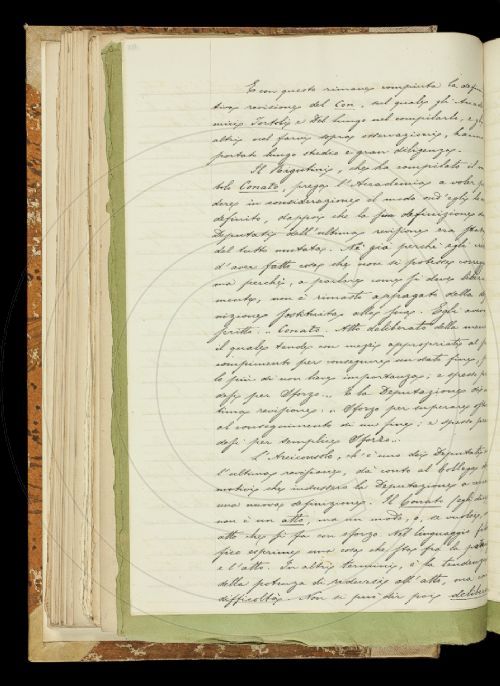 E con questo rimane compiuta la defini
tiva revisione del Con, sul quale gli Acca
mici Tortoli e Del Lungo nel compilarlo, e gli
altri nel farvi sopra osservazioni, hanno
portato lungo studio e gran diligenza.
Il Tergutini, che ha compilato il
tolo Conato, prega l'Accademia a voler
dere in considerazione il modo ond'egli
definito, dappoi che la sua definizione
Deputati dell'ultima revisione era stata
del tutto mutata. Nè già perchè egli
d'aver fatto cosa che non si potesse corre
ma perchè, a parlare come si deve libera
mente, non è rimasto appagato della
nizione sostituita alla sua. Egli aveva
scritto: Conato. Atto deliberato della mente
il quale tende con mezzi appropriati al
compimento per conseguire un dato fine,
lo più di non lieve importanza; e spesso
desi per Sforzo. E la Deputazione
tima revisione: Sforzo per superare
al conseguimento di un fine; e spesso
desi per semplice Sforzo.
L'Arciconsolo, ch'è uno dei Deputati
l'ultima revisione, dà conto al Collegio
motivi che indussero la Deputazione a
una nuova definizione. Il Conato
non è un atto, ma un modo, o, se vuolsi,
atto che si fa con sforzo. Nel linguaggio
fico esprime una cosa che sta fra la
e l'atto. In altri termini, è la tendenza
della potenza di ridursi all'atto, ma con
difficoltà. Non si può dir poi delibera